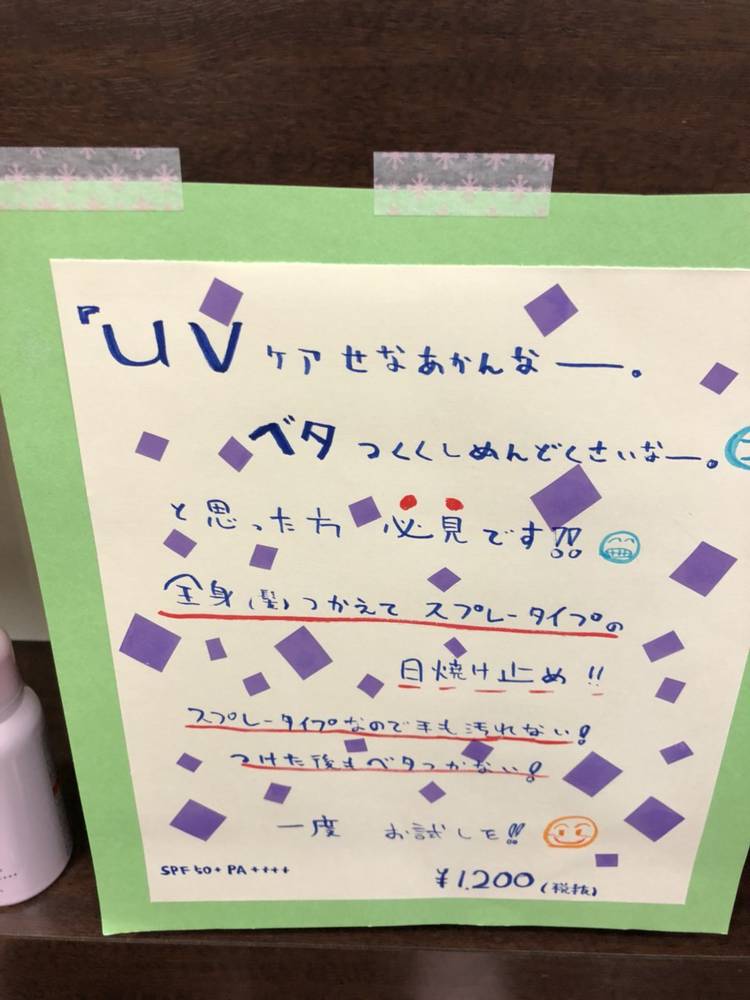 『UVケアせなあかんなー。
ベタつくくしめんどくさいなー。
と思った方 必見です!!
全身(髪)つかえて スプレータイプの
日焼け止め!!
スプレータイプなので手も汚れない!
つけた後もベタつかない!
一度 お試しを!!
SPF50+ PA++++
¥1,200(税抜)